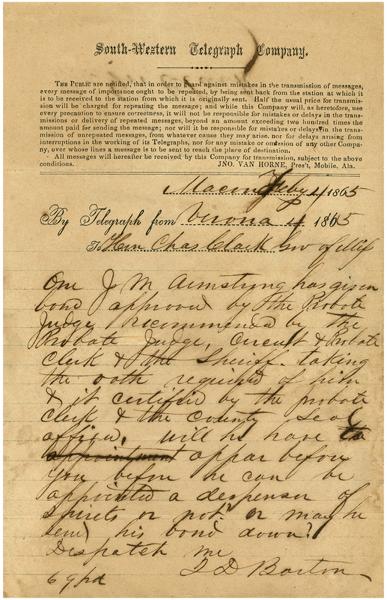 South-Western Telegraph Company.
THE PUBLIC are notified, that in order to guard against mistakes in the transmission of messages,
every message of importance ought to be repeated, by being sent back from the station at which it
is to be received to the station from which it is originally sent. Half the usual price for transmis-
sion will be charged for repeating the message; and while this Company will, as heretofore, use
every precaution to ensure correctness, it will not be responsible for mistakes or delays in the trans-
missions or delivery of repeated messages, beyond an amount exceeding two hundred times the
amount paid for sending the message; nor will it be responsible for mistakes or delays in the trans-
mission of unrepeated messages, from whatever cause they may arise, nor for delays arising from
interruptions in the working of its Telegraphs, nor for any mistake or omission of any other Compa-
ny, over whose lines a message is to be sent to reach the place of destination.
All messages will hereafter be received by this Company for transmission, subject to the above
conditions. JNO. VAN HORNE, Pres't, Mobile, Ala.
Macon Feby 4 1865
By Telegraph from Verona 4 1865
To Hon Chas Clark Gov of Miss
One J M Armstrong has given
bond approved by the Probate
Judge, recommened by the
Probate Judge, Circuit & Probate
Clerk & the Sheriff. taking
the oath required of him
& it certified by the probate
Clerk & the County Seal
affixed. will he have to
appointment appar before
you before he can be
appointed a despenser of
Spirits or not. or may he
send his bond down?
Despatch me
J D Barton
69 pd